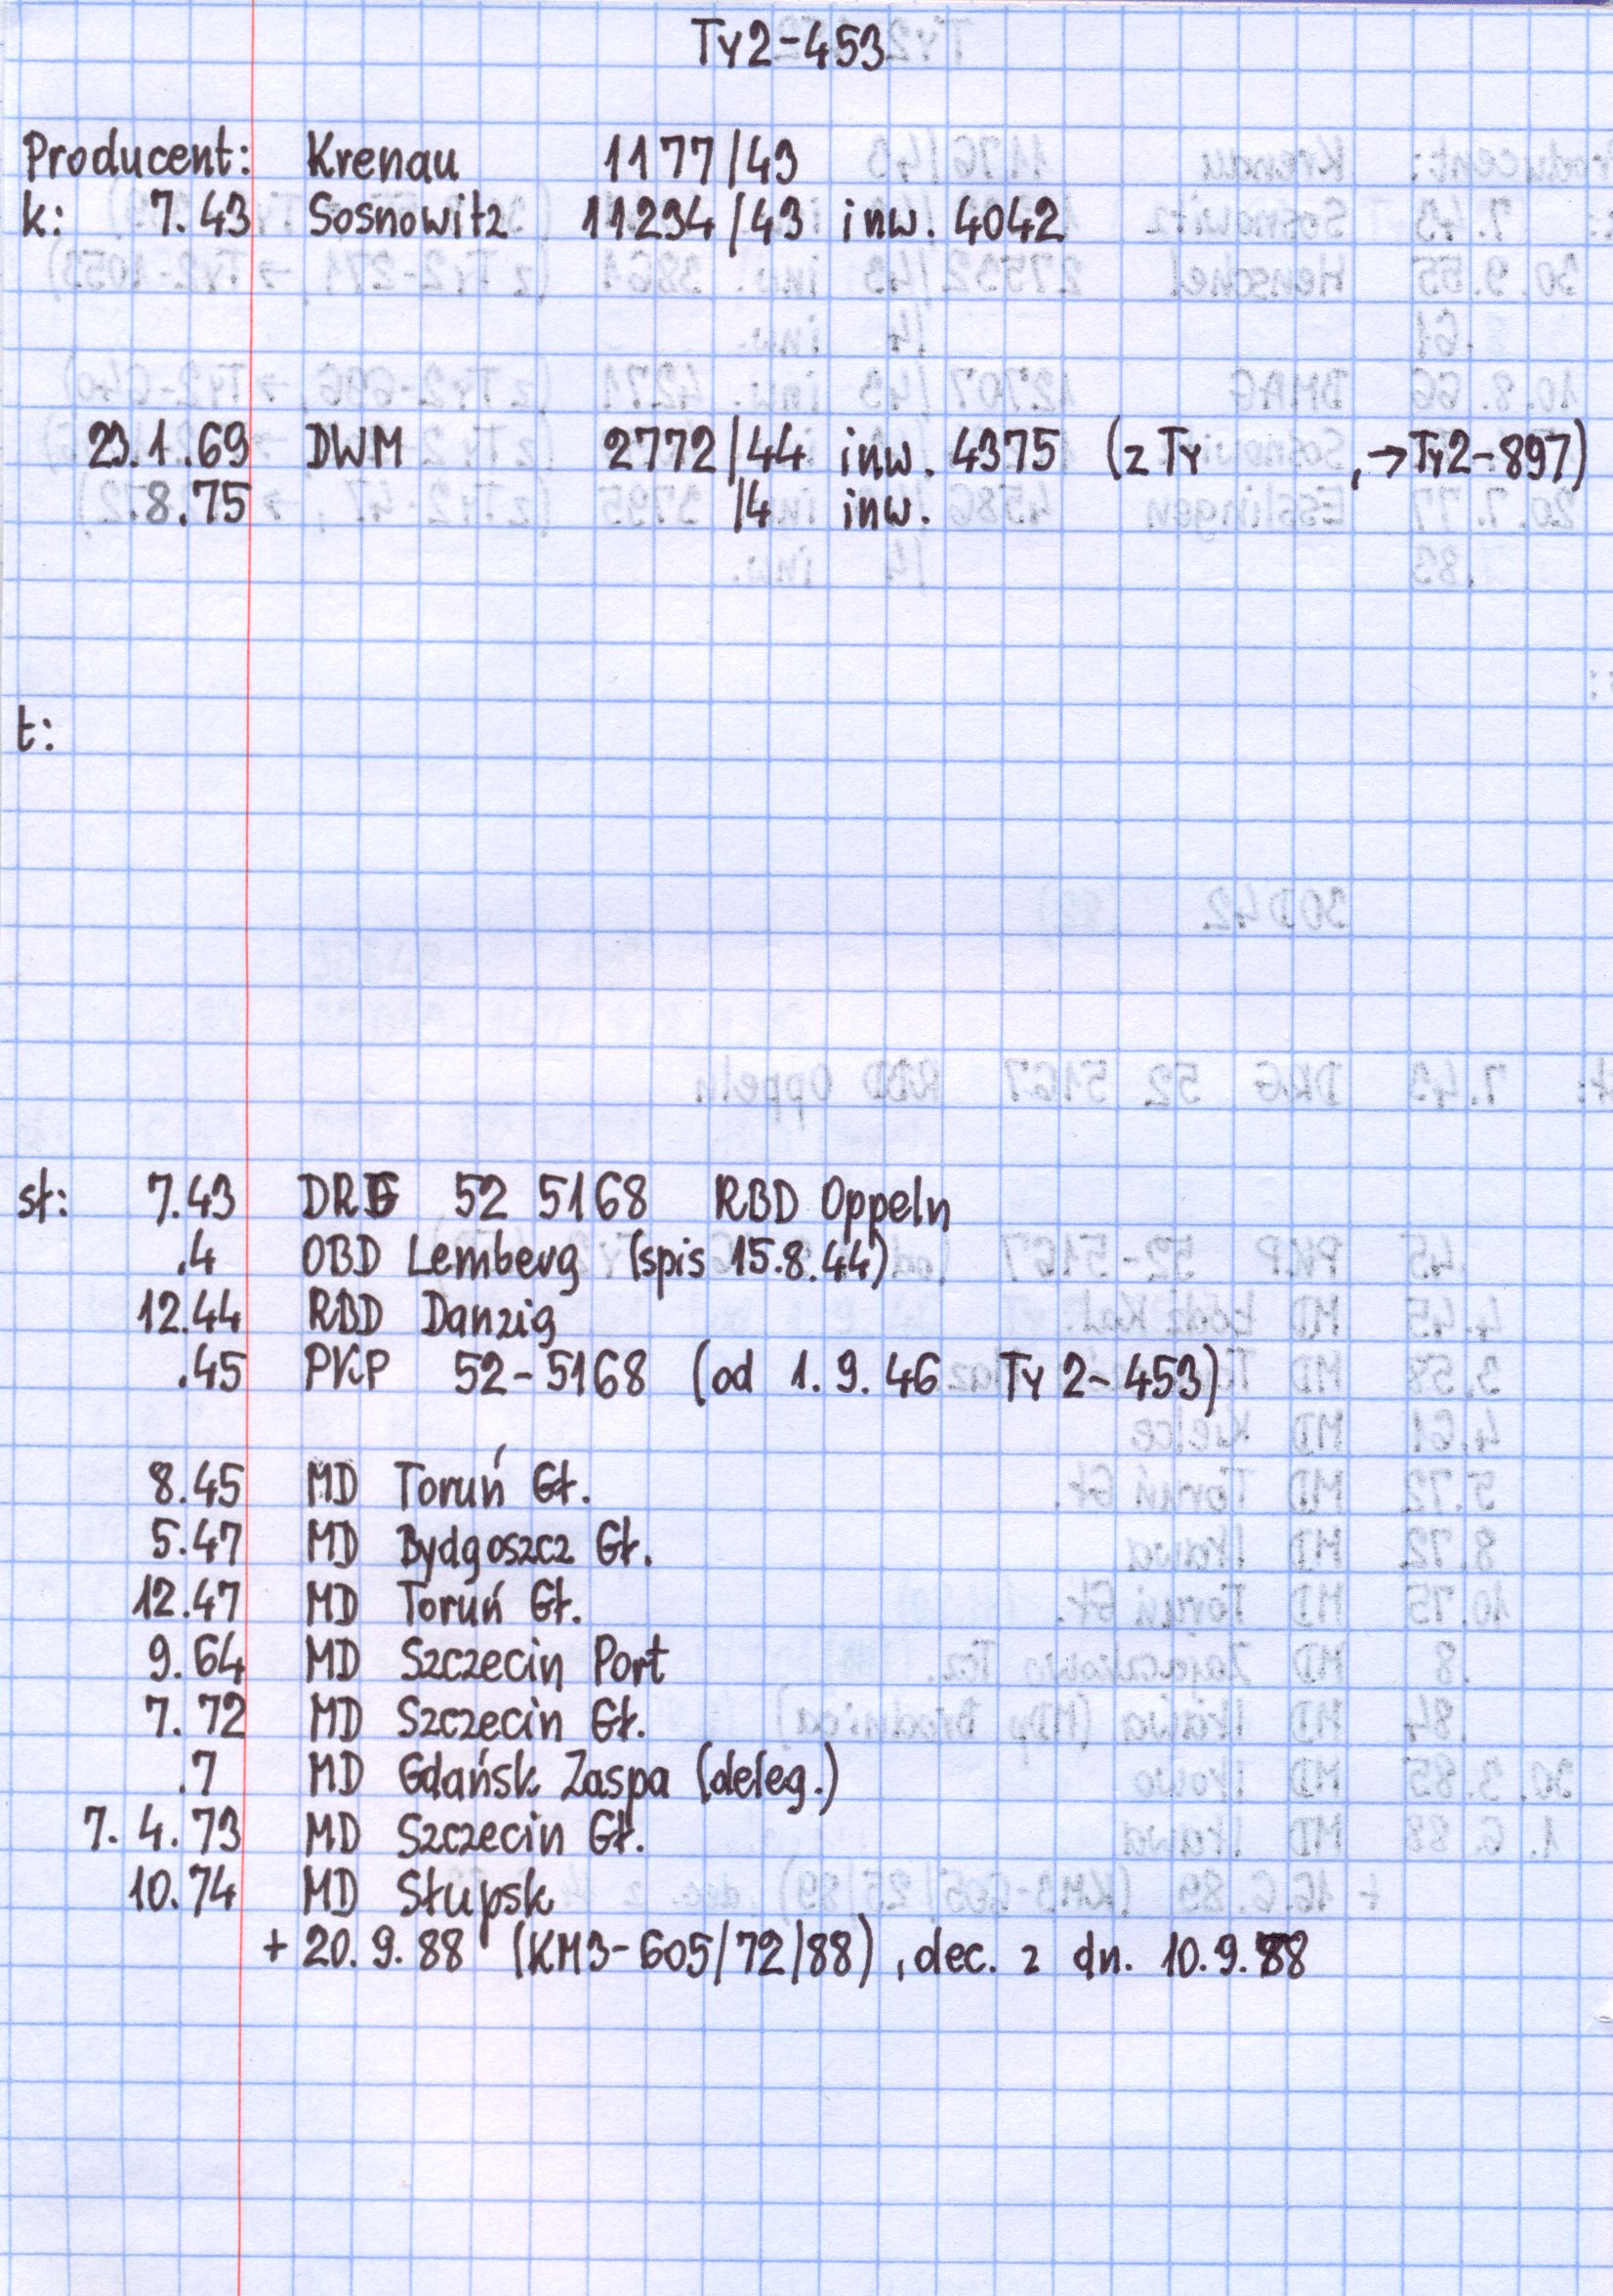 Ty2-453
Producent: Krenau 1177/43
k: 7.43 Sosnowitz 11234/43 inw. 4042
23.1.69 DWM 2772/44 inw. 4375 (z Ty , → Ty2-897)
8.75 /4 inw.
t:
st: 7.43 DRG 52 5168 RBD Oppeln
.4 OBD Lemberg (spis 15.8.44)
12.44 RBD Danzig
.45 PKP 52-5168 (od 1.9.46 Ty2-453)
8.45 MD Toruń Gł.
5.47 MD Bydgoszcz Gł.
12.47 MD Toruń Gł.
9.64 MD Szczecin Port
7.72 MD Szczecin Gł.
.7 MD Gdańsk Zaspa (deleg.)
7.4.73 MD Szczecin Gł.
10.74 MD Słupsk
+ 20.9.88 (KM3-605/72/88), dec. z dn. 10.9.88